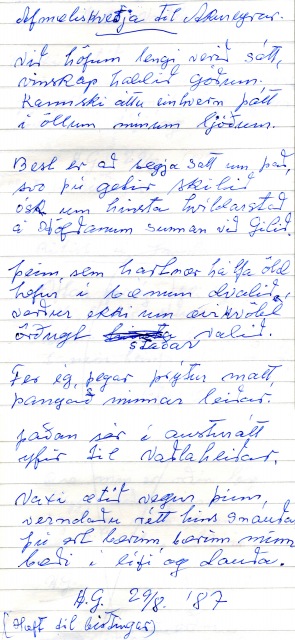 Afmæliskveðja til Akureyrar.
Við höfum lengi verið sátt,
vinskap haldið góðum.
Kannski áttu einhvern þátt
í öllum mínum ljóðum.
Best er að segja satt um það,
svo þú getir skilið
ósk um hinsta hvíldarstað
á Höfðanum sunnan við Gilið.
Þeim sem hartnær hálfa öld
hefur í bænum dvalið,
verður ekki um ævikvöld
örðugt staðar valið.
Fer ég, þegar þrýtur mátt,
þangað minnar leiðar.
þaðan sér í austurátt
yfir til Vaðlaheiðar.
Vaxi ætíð vegur þinn,
verndaðu rétt hins snauða
þú ert bærinn, bærinn minn
bæði í lífi og dauða.
H.G. 29/8. '87
(Haft til birtingar)